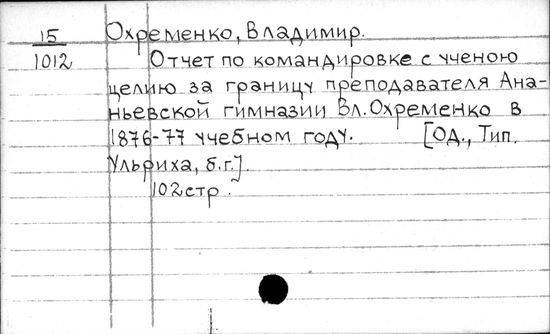 15 Охременко, Владимир.
1012 Отчет по командировке с ученою
целию за границу преподавателя Ана-
ньевской гимназии Вл. Охременко в
1876-77 учебном году. [Од., Тип.
Ульриха, б.г.].
102 стр.